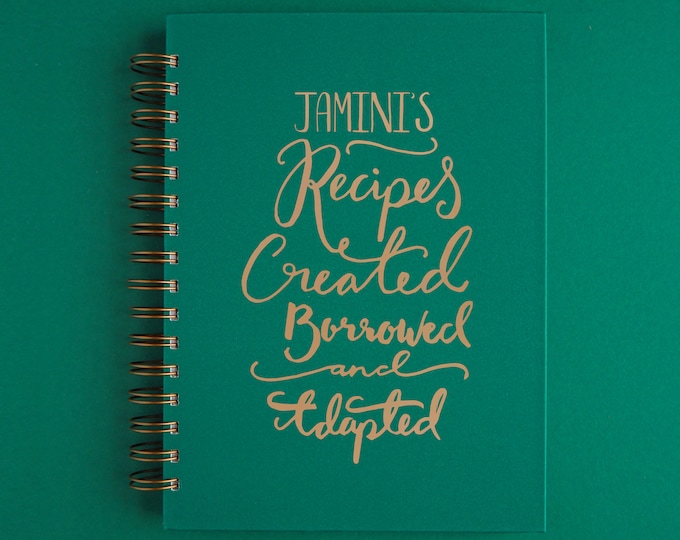 JAMINI'S
Recipes
Created
Borrowed
and
Adapted